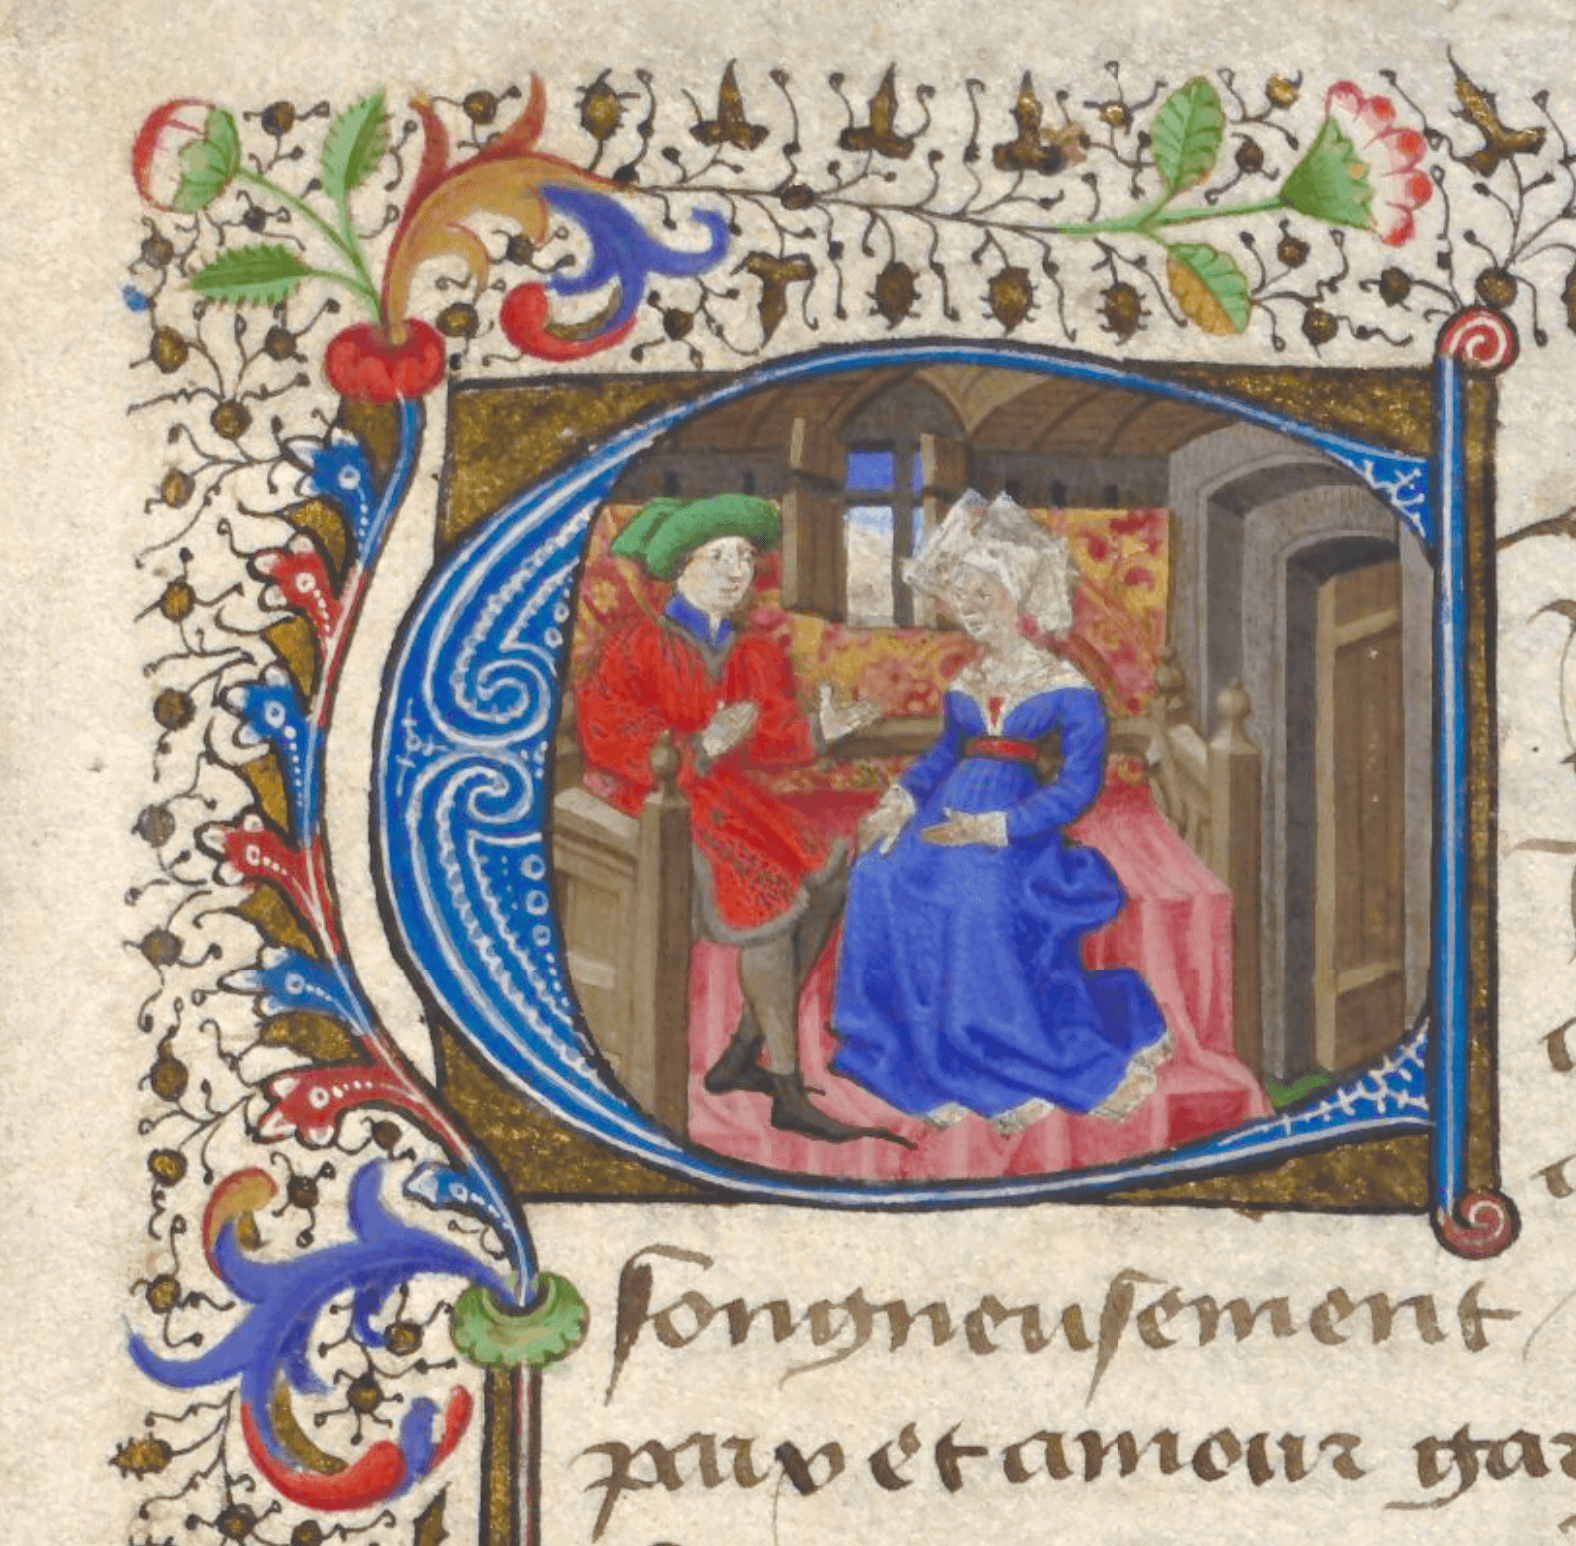 E
songneusement
paix et amour gar